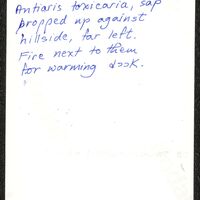 Antiaris toxicaria, sap
propped up against
hillside, far left.
Fire next to them
for warming